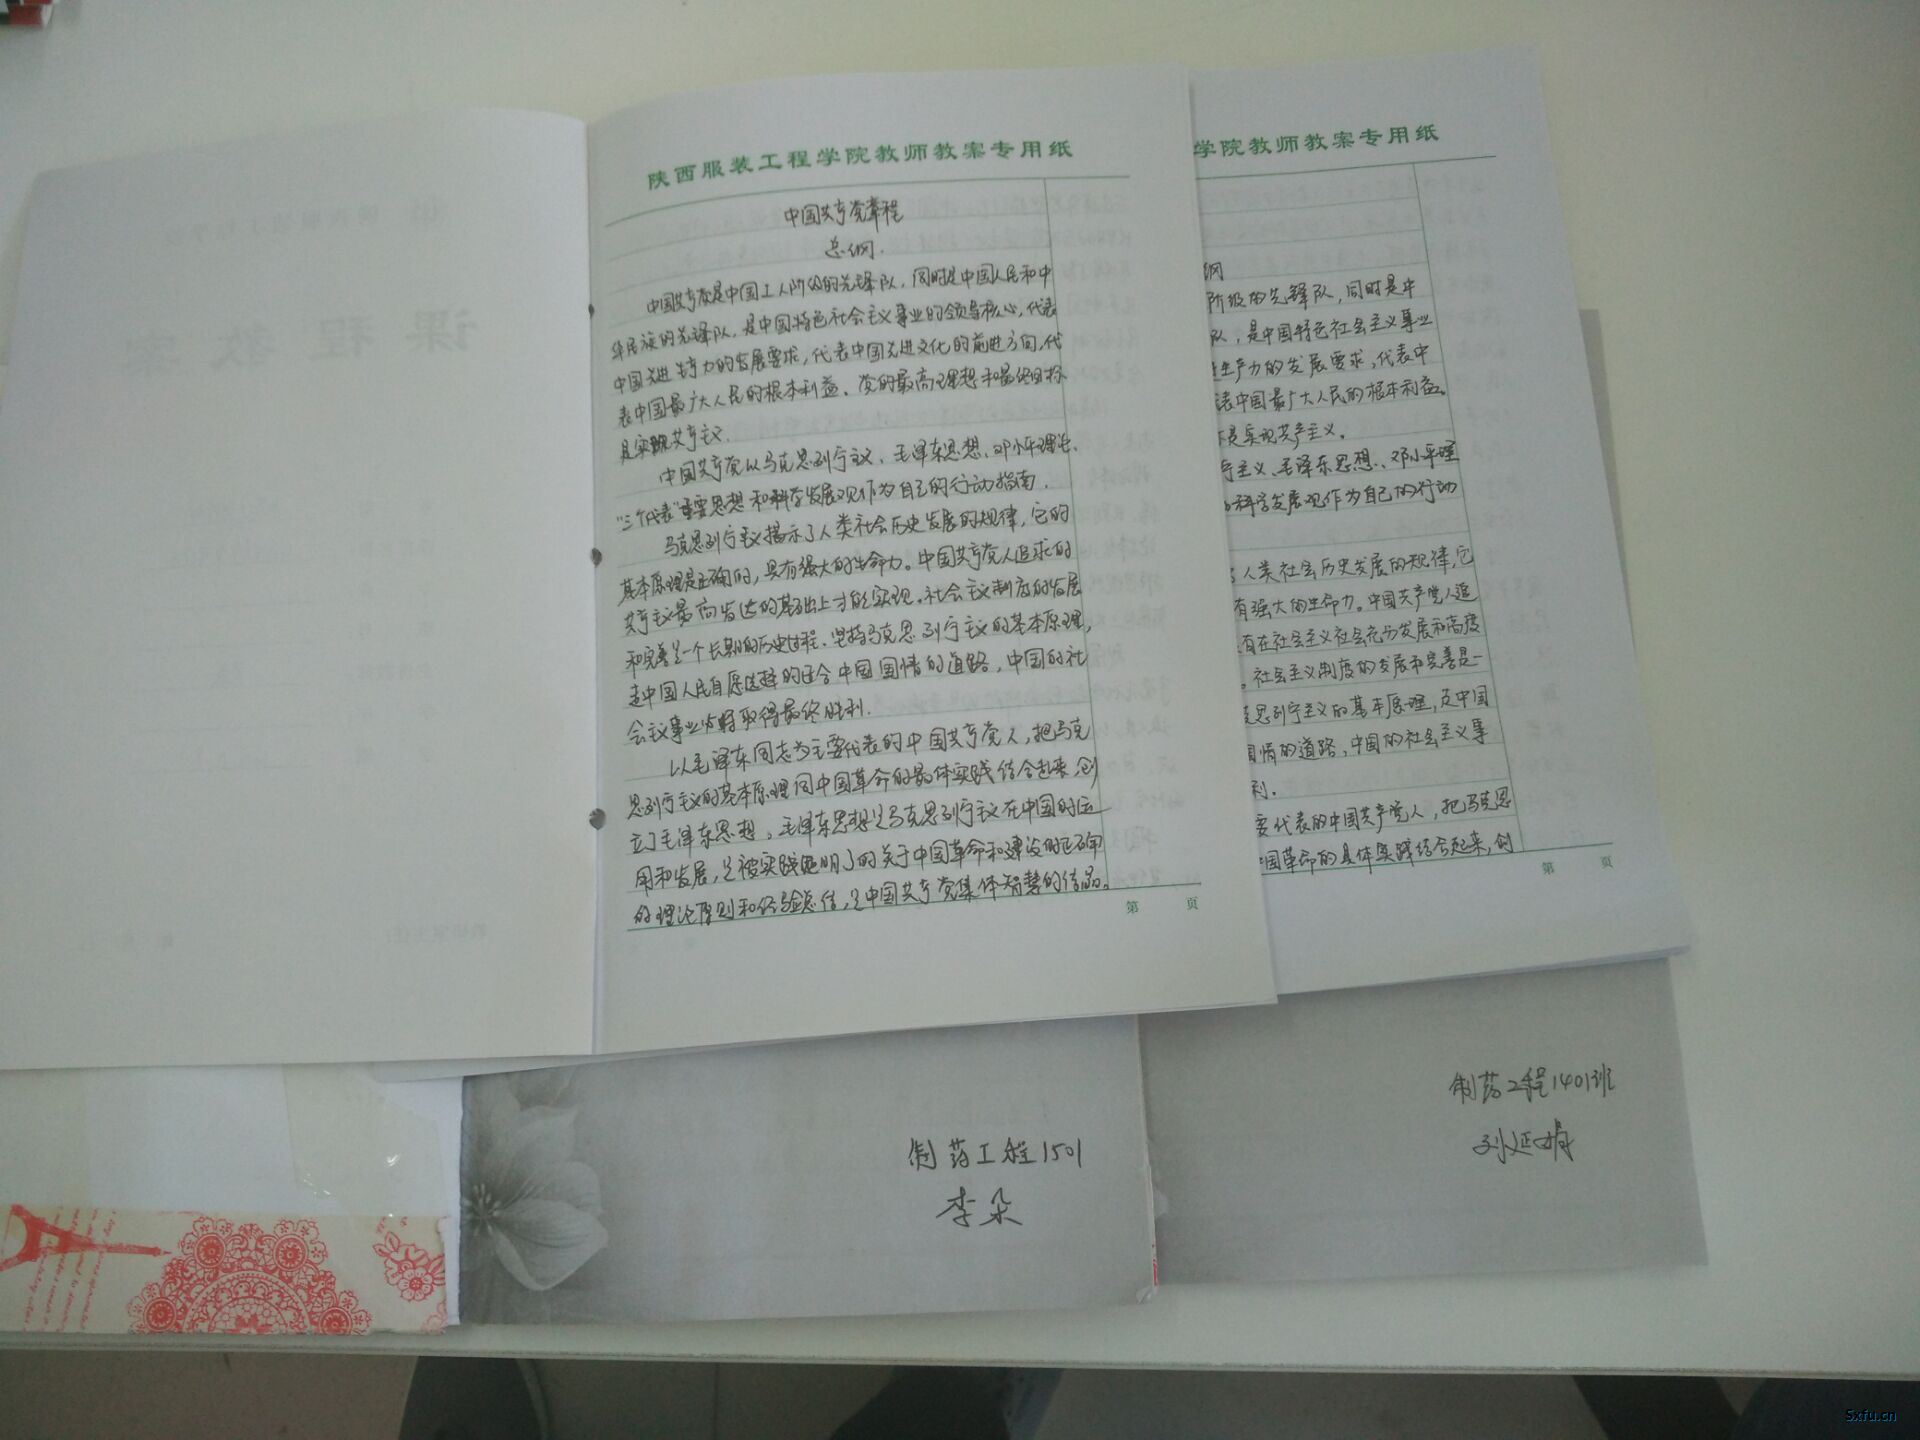 陕西服装工程学院教师教案专用纸
中国共产党章程
总纲.
中国共产党是中国工人阶级的先锋队,同时是中国人民和中
华民族的先锋队,是中国特色社会主义事业的领导核心,代表
中国先进生产力的发展要求,代表中国先进文化的前进方向,代
表中国最广大人民的根本利益。党的最高理想和最终目标
是实现共产主义.
中国共产党以马克思列宁主义、毛泽东思想、邓小平理论、
“三个代表”重要思想和科学发展观作为自己的行动指南.
马克思列宁主义揭示了人类社会历史发展的规律,它的
基本原理是正确的,具有强大的生命力。中国共产党人追求的
共产主义最高发达的基础上才能实现。社会主义制度的发展
和完善是一个长期的历史过程.坚持马克思列宁主义的基本原理,
走中国人民自愿选择的适合中国国情的道路,中国的社
会主义事业必将取得最终胜利.
以毛泽东同志为主要代表的中国共产党人,把马克
思列宁主义的基本原理同中国革命的具体实践结合起来,创
立了毛泽东思想。毛泽东思想是马克思列宁主义在中国的运
用和发展,是被实践证明了的关于中国革命和建设的正确
的理论原则和经验总结,是中国共产党集体智慧的结晶。
第 页
学院教师教案专用纸
纲
阶级的先锋队,同时是中
队,是中国特色社会主义事业
生产力的发展要求,代表中
表中国最广大人民的根本利益。
是实现共产主义。
宁主义、毛泽东思想、邓小平理
科学发展观作为自己的行动
人类社会历史发展的规律,它
有强大的生命力。中国共产党人追
有在社会主义社会充分发展和高度
。社会主义制度的发展和完善是一
克思列宁主义的基本原理,走中国
国情的道路,中国的社会主义事
利.
要代表的中国共产党人,把马克思
中国革命的具体实践结合起来,创
第 页
制药工程1501
李朵
制药工程1401班
刘延娟
Sxfu.cn